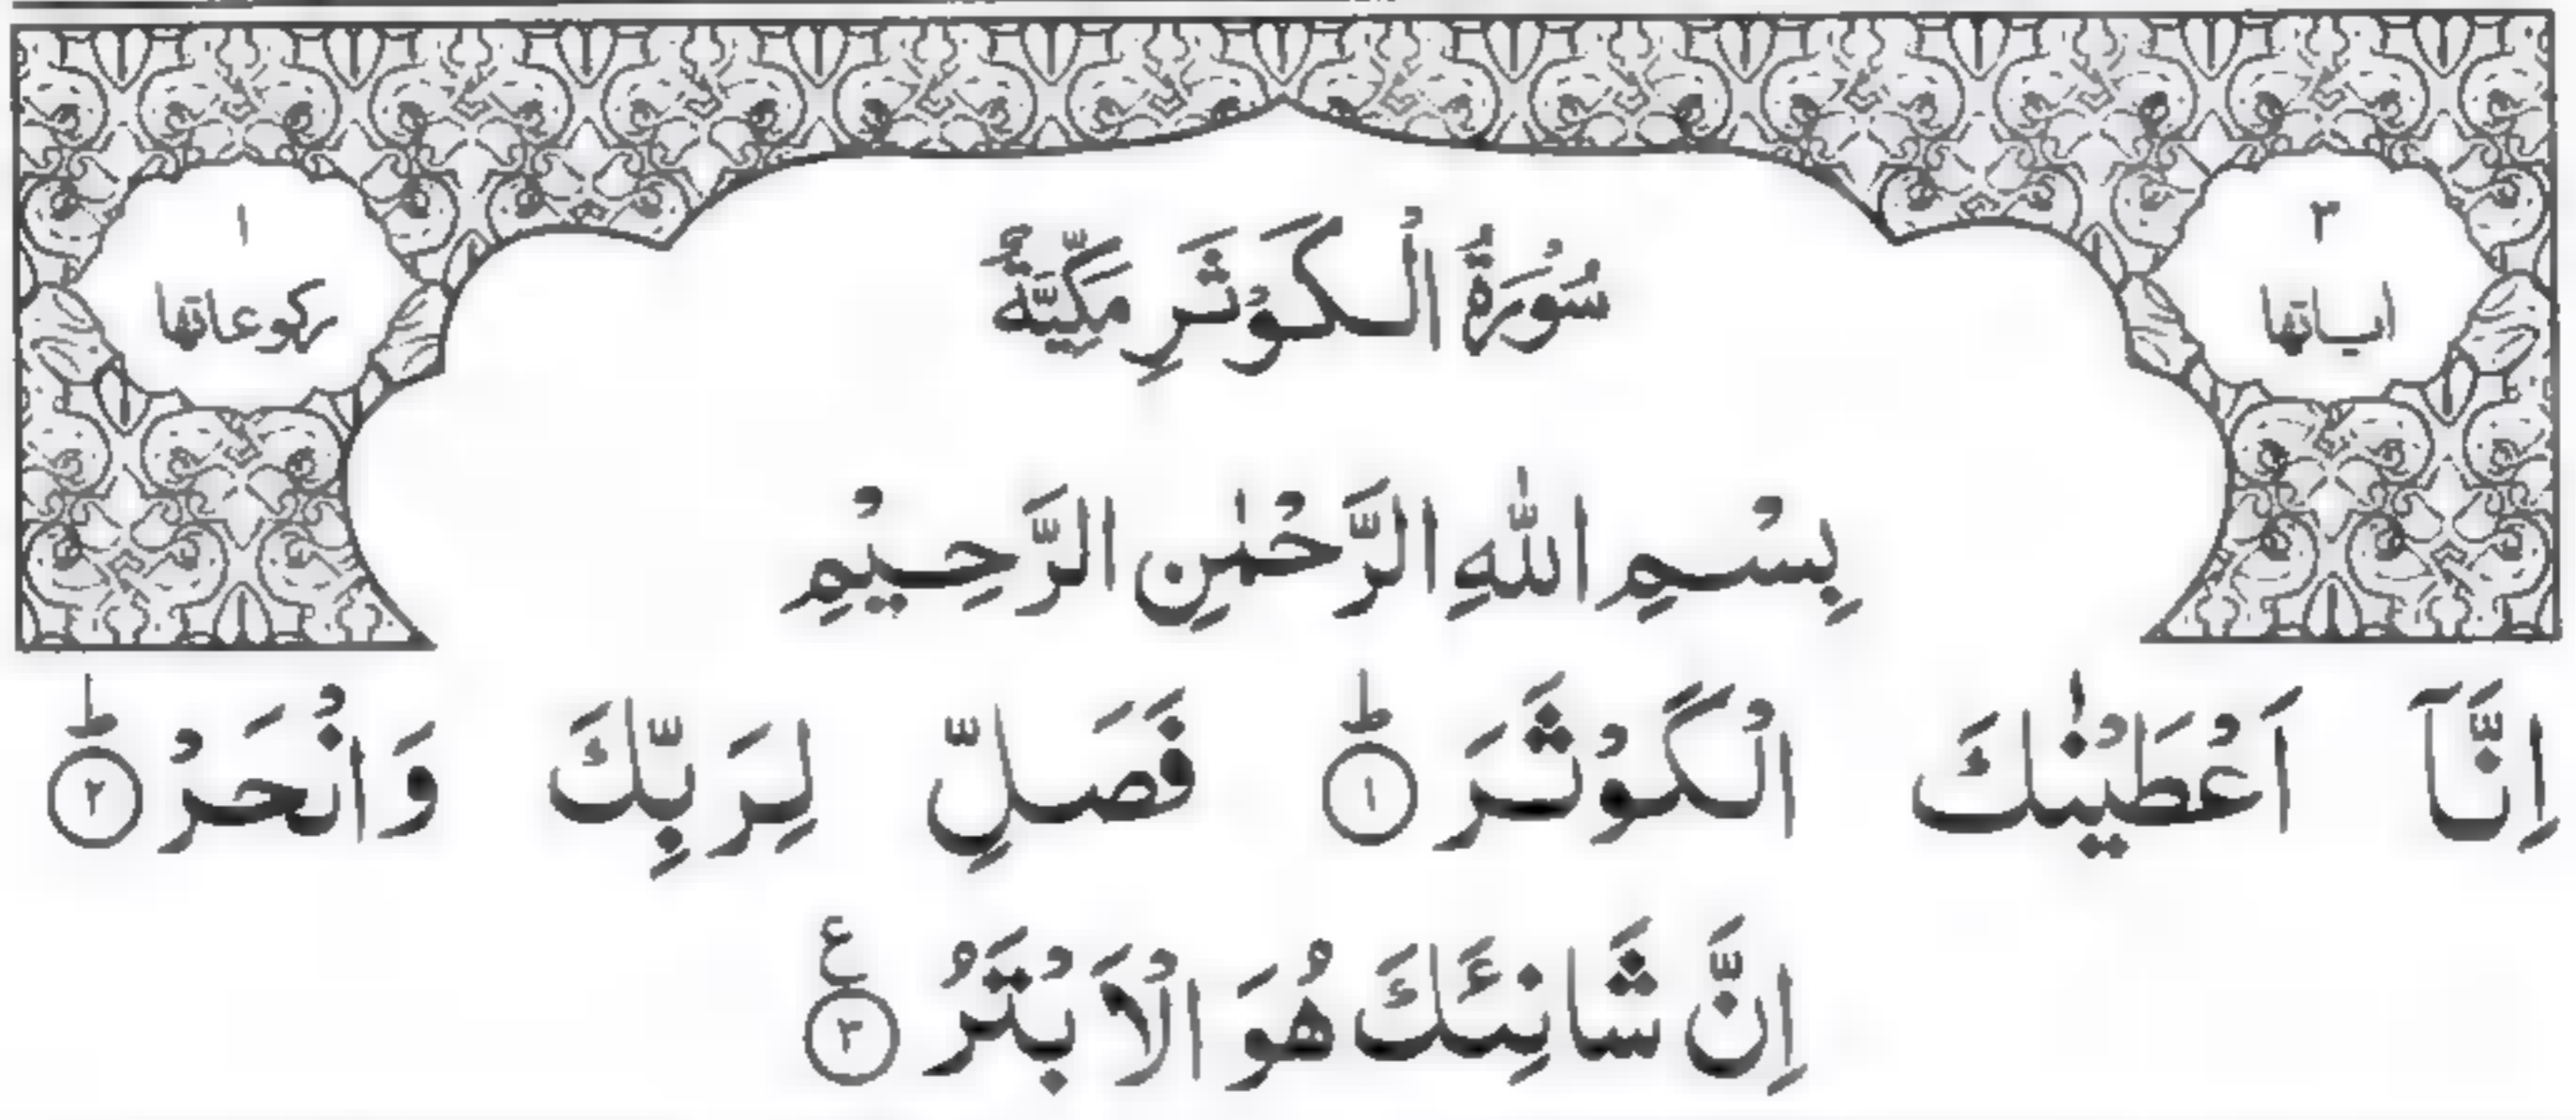 ٣
اٰیاتها
سُوْرَةُ الْکَوْثَرِ مَکِّیَّةٌ
١
رکوعاتها
بِسْمِ اللّٰهِ الرَّحْمٰنِ الرَّحِیْمِ
اِنَّاۤ اَعْطَیْنٰكَ الْكَوْثَرَؕ ۝١ فَصَلِّ لِرَبِّكَ وَانْحَرْؕ ۝٢
اِنَّ شَانِئَكَ هُوَ الْاَبْتَرُ ۝٣ ع